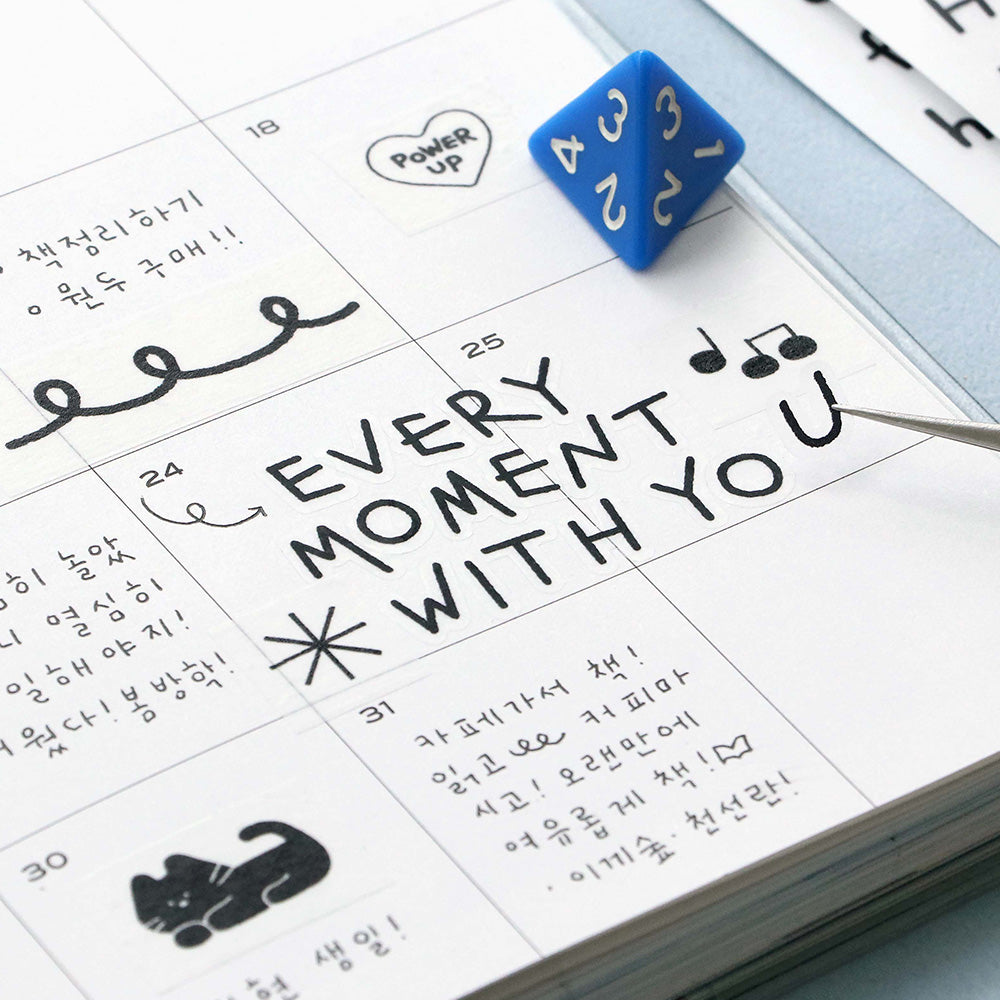 18
POWER
UP
책정리하기
원두 구매!!
4 3 3 1
2 2
f
h
25
24
EVERY
MOMENT
WITH YOU
히 놀았
열심히
일해야지!
웠다! 봄방학!
31
카페가서 책!
읽고 커피마
시고! 오랜만에
여유롭게 책!
·이끼숲·천선란!
30
현 생일!